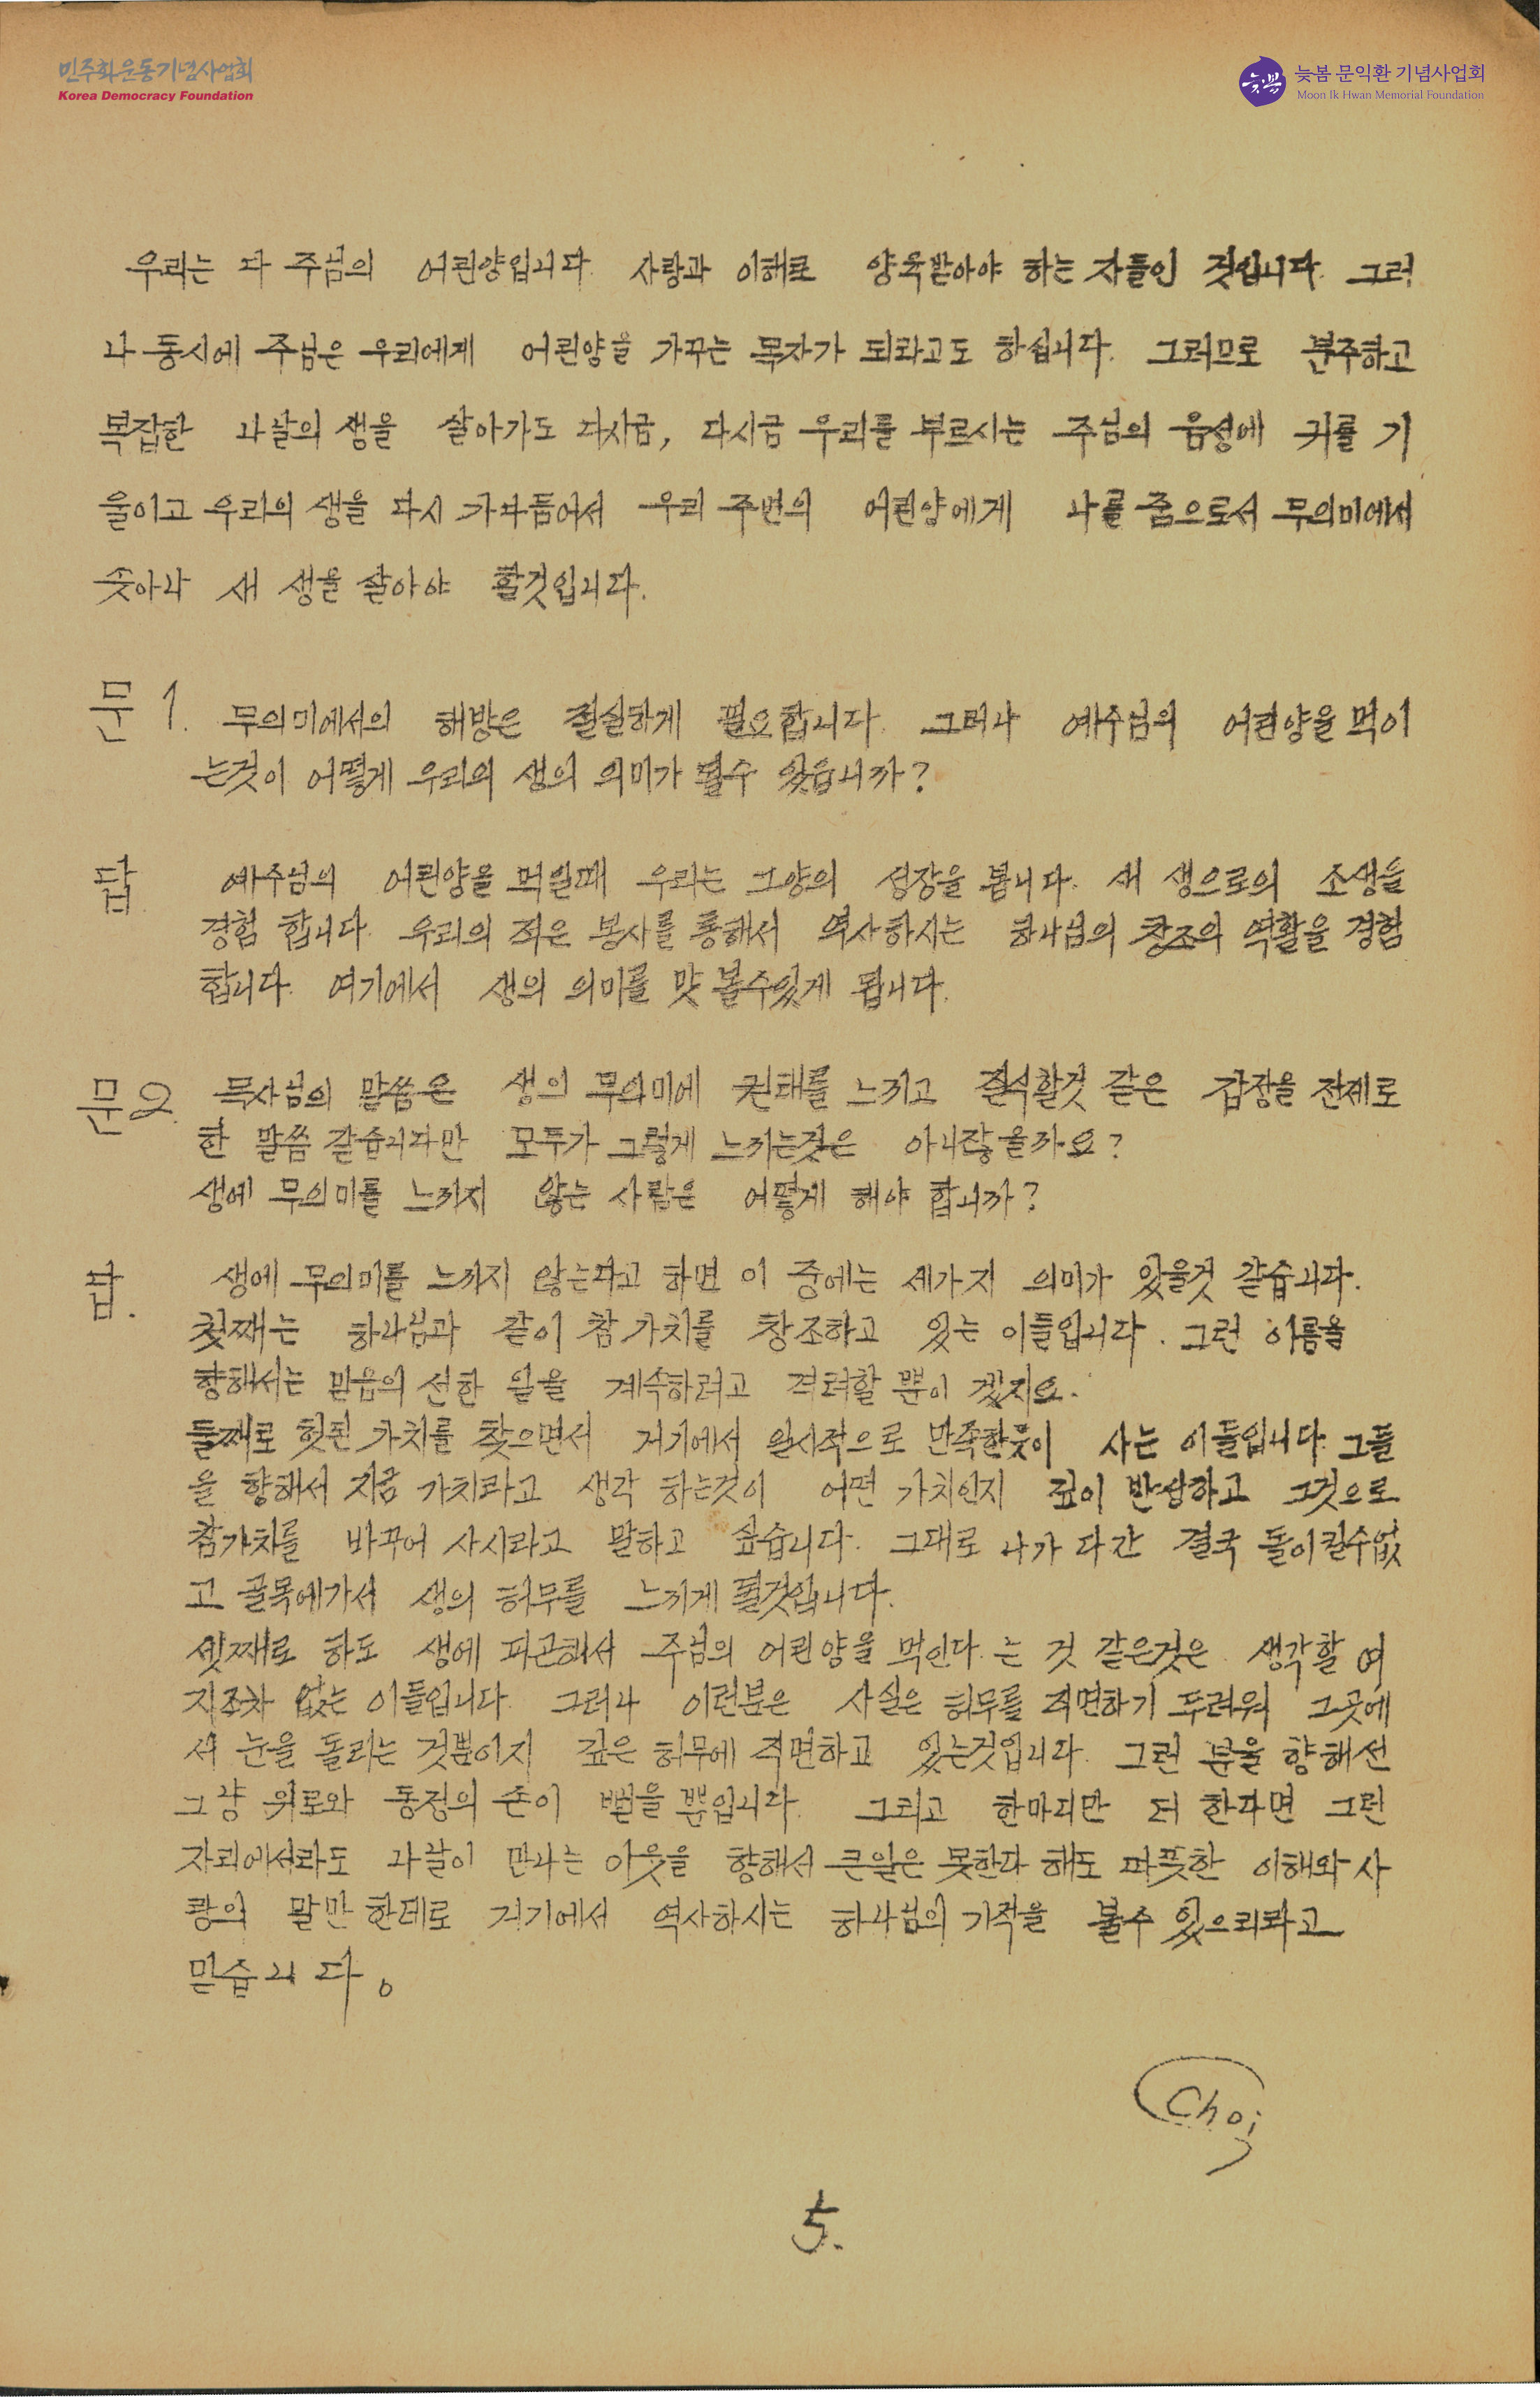 민주화운동기념사업회
Korea Democracy Foundation
늦봄
늦봄 문익환 기념사업회
Moon Ik Hwan Memorial Foundation
우리는 다 주님의 어린양입니다. 사랑과 이해로 양육받아야 하는 자들인 것입니다. 그러
나 동시에 주님은 우리에게 어린양을 가꾸는 목자가 되라고도 하십니다. 그러므로 분주하고
복잡한 나날의 생을 살아가도 다시금, 다시금 우리를 부르시는 주님의 음성에 귀를 기
울이고 우리의 생을 다시 가다듬어서 우리 주변의 어린양에게 나를 줌으로서 무의미에서
솟아나 새 생을 살아야 할것입니다.
문 1. 무의미에서의 해방은 절실하게 필요합니다. 그러나 예수님의 어린양을 먹이
는것이 어떻게 우리의 생의 의미가 될수 있읍니까?
답 예수님의 어린양을 먹일때 우리는 그양의 성장을 봅니다. 새 생으로의 소생을
경험 합니다. 우리의 적은 봉사를 통해서 역사하시는 하나님의 창조의 역활을 경험
합니다. 여기에서 생의 의미를 맛 볼수있게 됩니다.
문2. 목사님의 말씀은 생의 무의미에 권태를 느끼고 질식할것 같은 감정을 전제로
한 말씀 같습니다만 모두가 그렇게 느끼는것은 아니잖을까요?
생에 무의미를 느끼지 않는 사람은 어떻게 해야 합니까?
답. 생에 무의미를 느끼지 않는다고 하면 이 중에는 세가지 의미가 있을것 같습니다.
첫째는 하나님과 같이 참 가치를 창조하고 있는 이들입니다. 그런 이름을
향해서는 믿음의 선한 일을 계속하려고 격려할 뿐이 겠지요.
둘째로 헛된 가치를 찾으면서 거기에서 일시적으로 만족한듯이 사는 이들입니다. 그들
을 향해서 지금 가치라고 생각 하는것이 어떤 가치인지 깊이 반성하고 그것으로
참가치를 바꾸어 사시라고 말하고 싶습니다. 그대로 나가 다간 결국 돌이킬수없
고 골목에가서 생의 허무를 느끼게 될것입니다.
셋째로 하도 생에 피곤해서 주님의 어린양을 먹인다 는 것 같은것은 생각할 여
지조차 없는 이들입니다. 그러나 이런분은 사실은 허무를 직면하기 두려워 그곳에
서 눈을 돌리는 것뿐이지 깊은 허무에 직면하고 있는것입니다. 그런 분을 향해선
그냥 위로와 동정의 손이 뻗을 뿐입니다. 그리고 한마디만 더 한다면 그런
자리에서라도 나날이 만나는 이웃을 향해서 큰일은 못한다 해도 따뜻한 이해와 사
랑의 말만 한데로 거기에서 역사하시는 하나님의 기적을 볼수 있으리라고
믿습니다。
Choi
5.